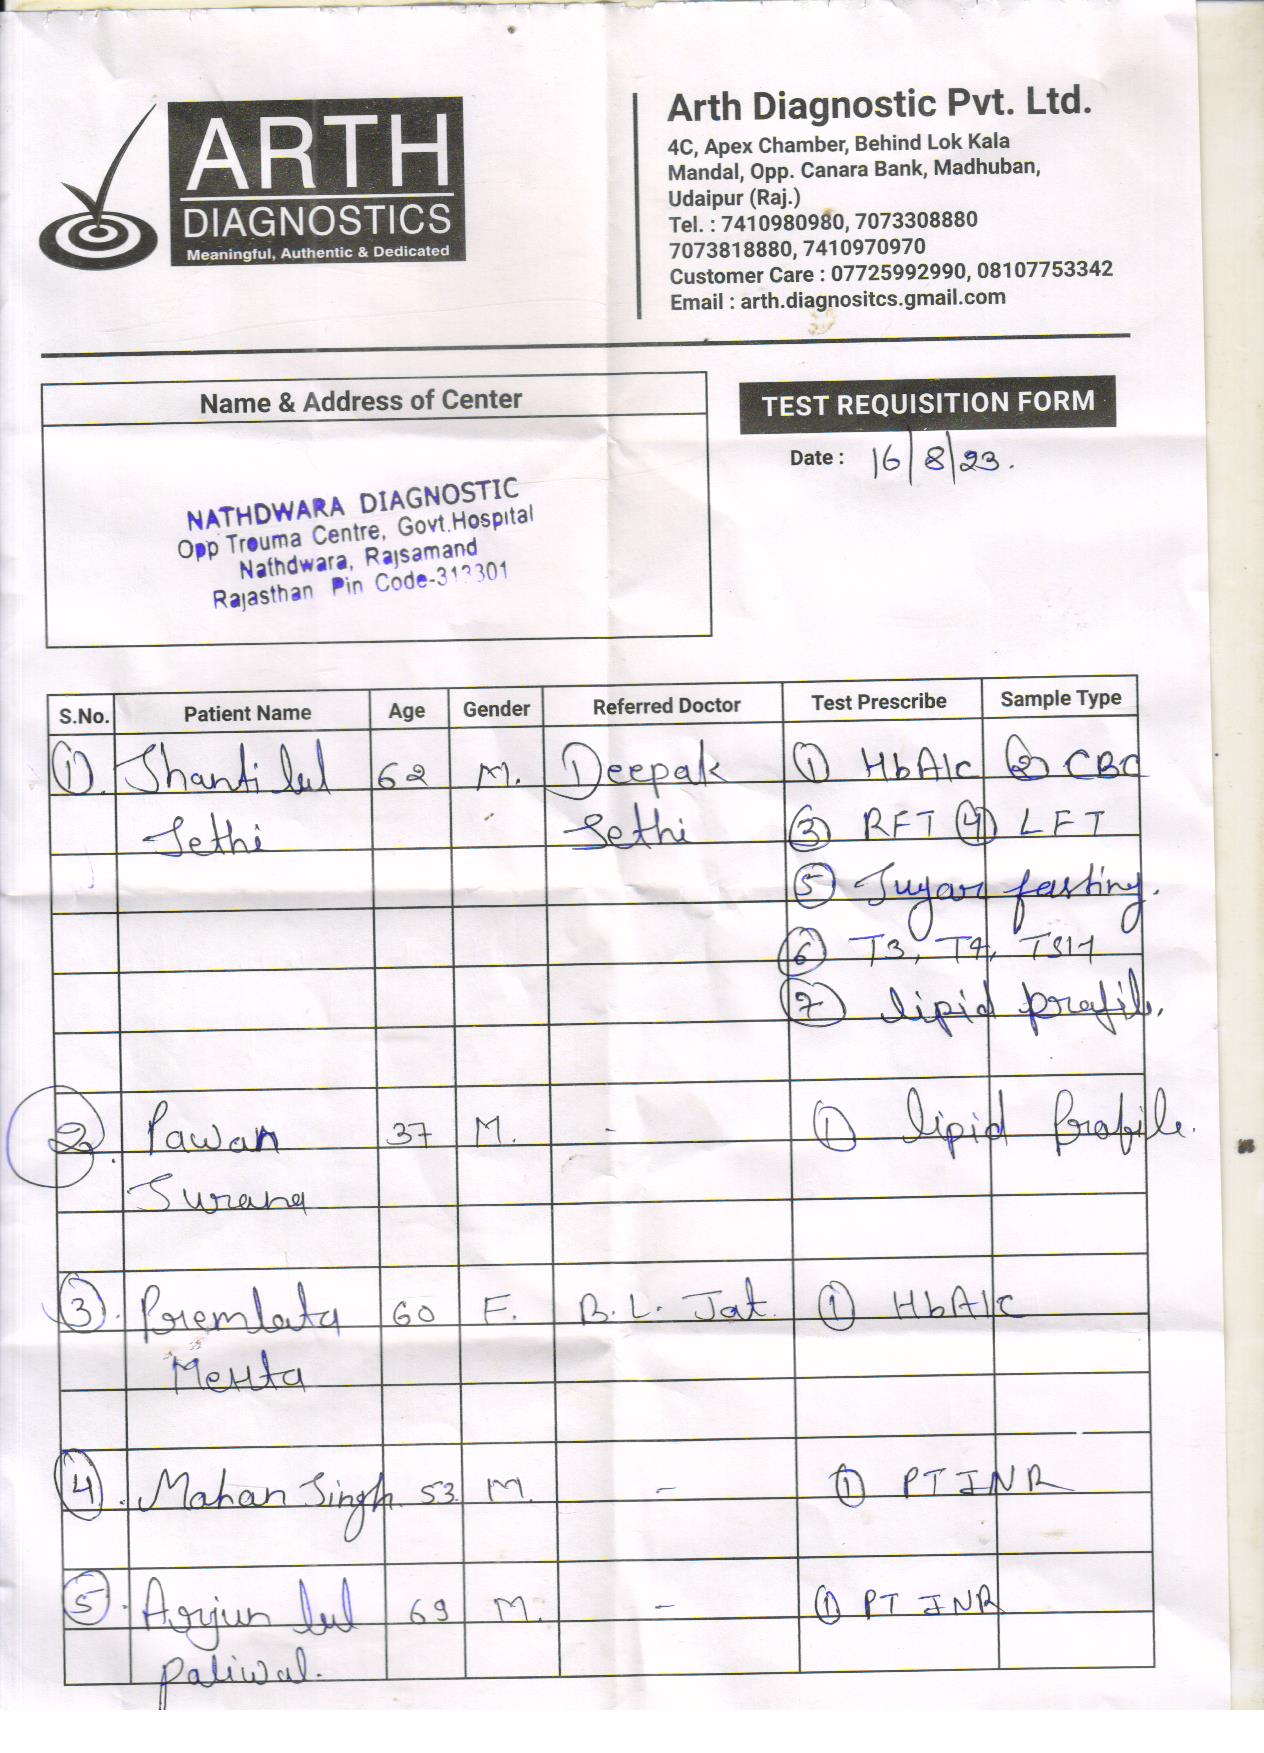 ARTH
DIAGNOSTICS
Meaningful, Authentic & Dedicated
Arth Diagnostic Pvt. Ltd.
4C, Apex Chamber, Behind Lok Kala
Mandal, Opp. Canara Bank, Madhuban,
Udaipur (Raj.)
Tel. : 7410980980, 7073308880
7073818880, 7410970970
Customer Care : 07725992990, 08107753342
Email : arth.diagnositcs.gmail.com
Name & Address of Center
NATHDWARA DIAGNOSTIC
Opp Trouma Centre, Govt.Hospital
Nathdwara, Rajsamand
Rajasthan Pin Code-313301
TEST REQUISITION FORM
Date : 16/8/23.
S.No. Patient Name Age Gender Referred Doctor Test Prescribe Sample Type
1. Shanti lal 62 M. Deepak 1 HbA1c 2 CBC
Sethi Sethi 3 RFT 4 LFT
5 Sugar fasting.
6 T3, T4, TSH
7 lipid profile.
2. Pawan 37 M. - 1 lipid Profile.
Surana
3. Premlata 60 F. B.L. Jat. 1 HbA1c
MeHta
4. Mahan Singh 53 M. - 1 PT INR
5. Arjun lal 69 M. - 1 PT INR
paliwal.